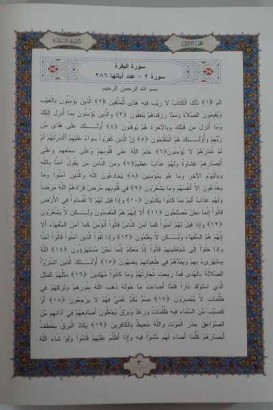 سورة البقرة
سورة ٢ - عدد آياتها ٢٨٦
بسم الله الرحمن الرحيم
الم (١) ذلك الكتاب لا ريب فيه هدى للمتقين (٢) الذين يؤمنون بالغيب
ويقيمون الصلاة ومما رزقناهم ينفقون (٣) والذين يؤمنون بما أنزل إليك
وما أنزل من قبلك وبالآخرة هم يوقنون (٤) أولئك على هدى من
ربهم وأولئك هم المفلحون (٥) إن الذين كفروا سواء عليهم أأنذرتهم أم
لم تنذرهم لا يؤمنون (٦) ختم الله على قلوبهم وعلى سمعهم وعلى
أبصارهم غشاوة ولهم عذاب عظيم (٧) ومن الناس من يقول آمنا بالله
وباليوم الآخر وما هم بمؤمنين (٨) يخادعون الله والذين آمنوا وما
يخدعون إلا أنفسهم وما يشعرون (٩) في قلوبهم مرض فزادهم الله مرضا
ولهم عذاب أليم بما كانوا يكذبون (١٠) وإذا قيل لهم لا تفسدوا في الأرض
قالوا إنما نحن مصلحون (١١) ألا إنهم هم المفسدون ولكن لا يشعرون
(١٢) وإذا قيل لهم آمنوا كما آمن الناس قالوا أنؤمن كما آمن السفهاء ألا
إنهم هم السفهاء ولكن لا يعلمون (١٣) وإذا لقوا الذين آمنوا قالوا آمنا
وإذا خلوا إلى شياطينهم قالوا إنا معكم إنما نحن مستهزؤون (١٤) الله
يستهزئ بهم ويمدهم في طغيانهم يعمهون (١٥) أولئك الذين اشتروا
الضلالة بالهدى فما ربحت تجارتهم وما كانوا مهتدين (١٦) مثلهم كمثل
الذي استوقد نارا فلما أضاءت ما حوله ذهب الله بنورهم وتركهم في
ظلمات لا يبصرون (١٧) صم بكم عمي فهم لا يرجعون (١٨) أو
كصيب من السماء فيه ظلمات ورعد وبرق يجعلون أصابعهم في آذانهم من
الصواعق حذر الموت والله محيط بالكافرين (١٩) يكاد البرق يخطف
أبصارهم كلما أضاء لهم مشوا فيه وإذا أظلم عليهم قاموا ولو شاء الله